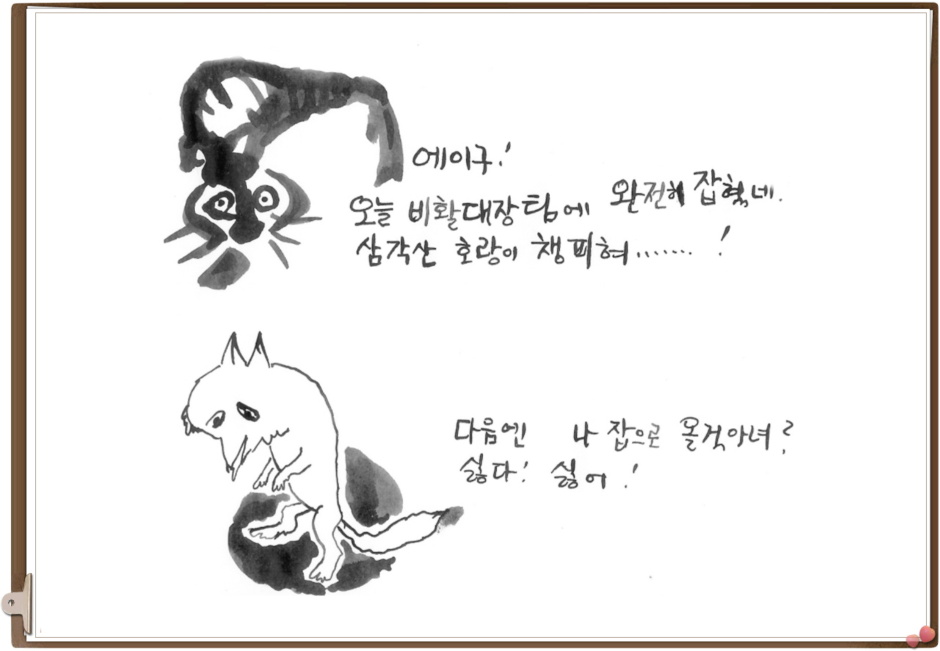 에이구!
오늘 비활대장팀에 완전히 잡혔네.
삼각산 호랑이 챙피혀....... !
다음엔 나 잡으로 올것아녀?
싫다! 싫어!